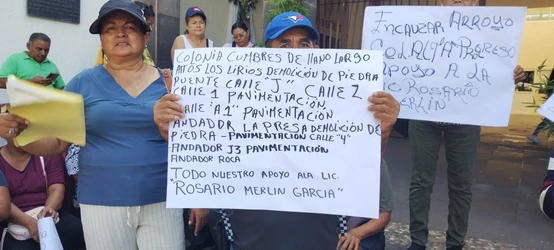 COLONIA CUMBRES DE LLANO LARGO
ALTOS LOS LIRIOS DEMOLICIÓN DE PIEDRA
PUENTE CALLE "J" CALLE Z
CALLE 1 PAVIMENTACIÓN
CALLE "A 1" PAVIMENTACIÓN
ANDADOR LA PRESA DEMOLICIÓN DE
PIEDRA - PAVIMENTACION CALLE "4"
ANDADOR J3 PAVIMENTACIÓN
ANDADOR ROCA
TODO NUESTRO APOYO A LA LIC.
"ROSARIO MERLIN GARCIA"
ENCAUZAR ARROYO
COL. PROGRESO
APOYO A LA
LIC ROSARIO
MERLIN